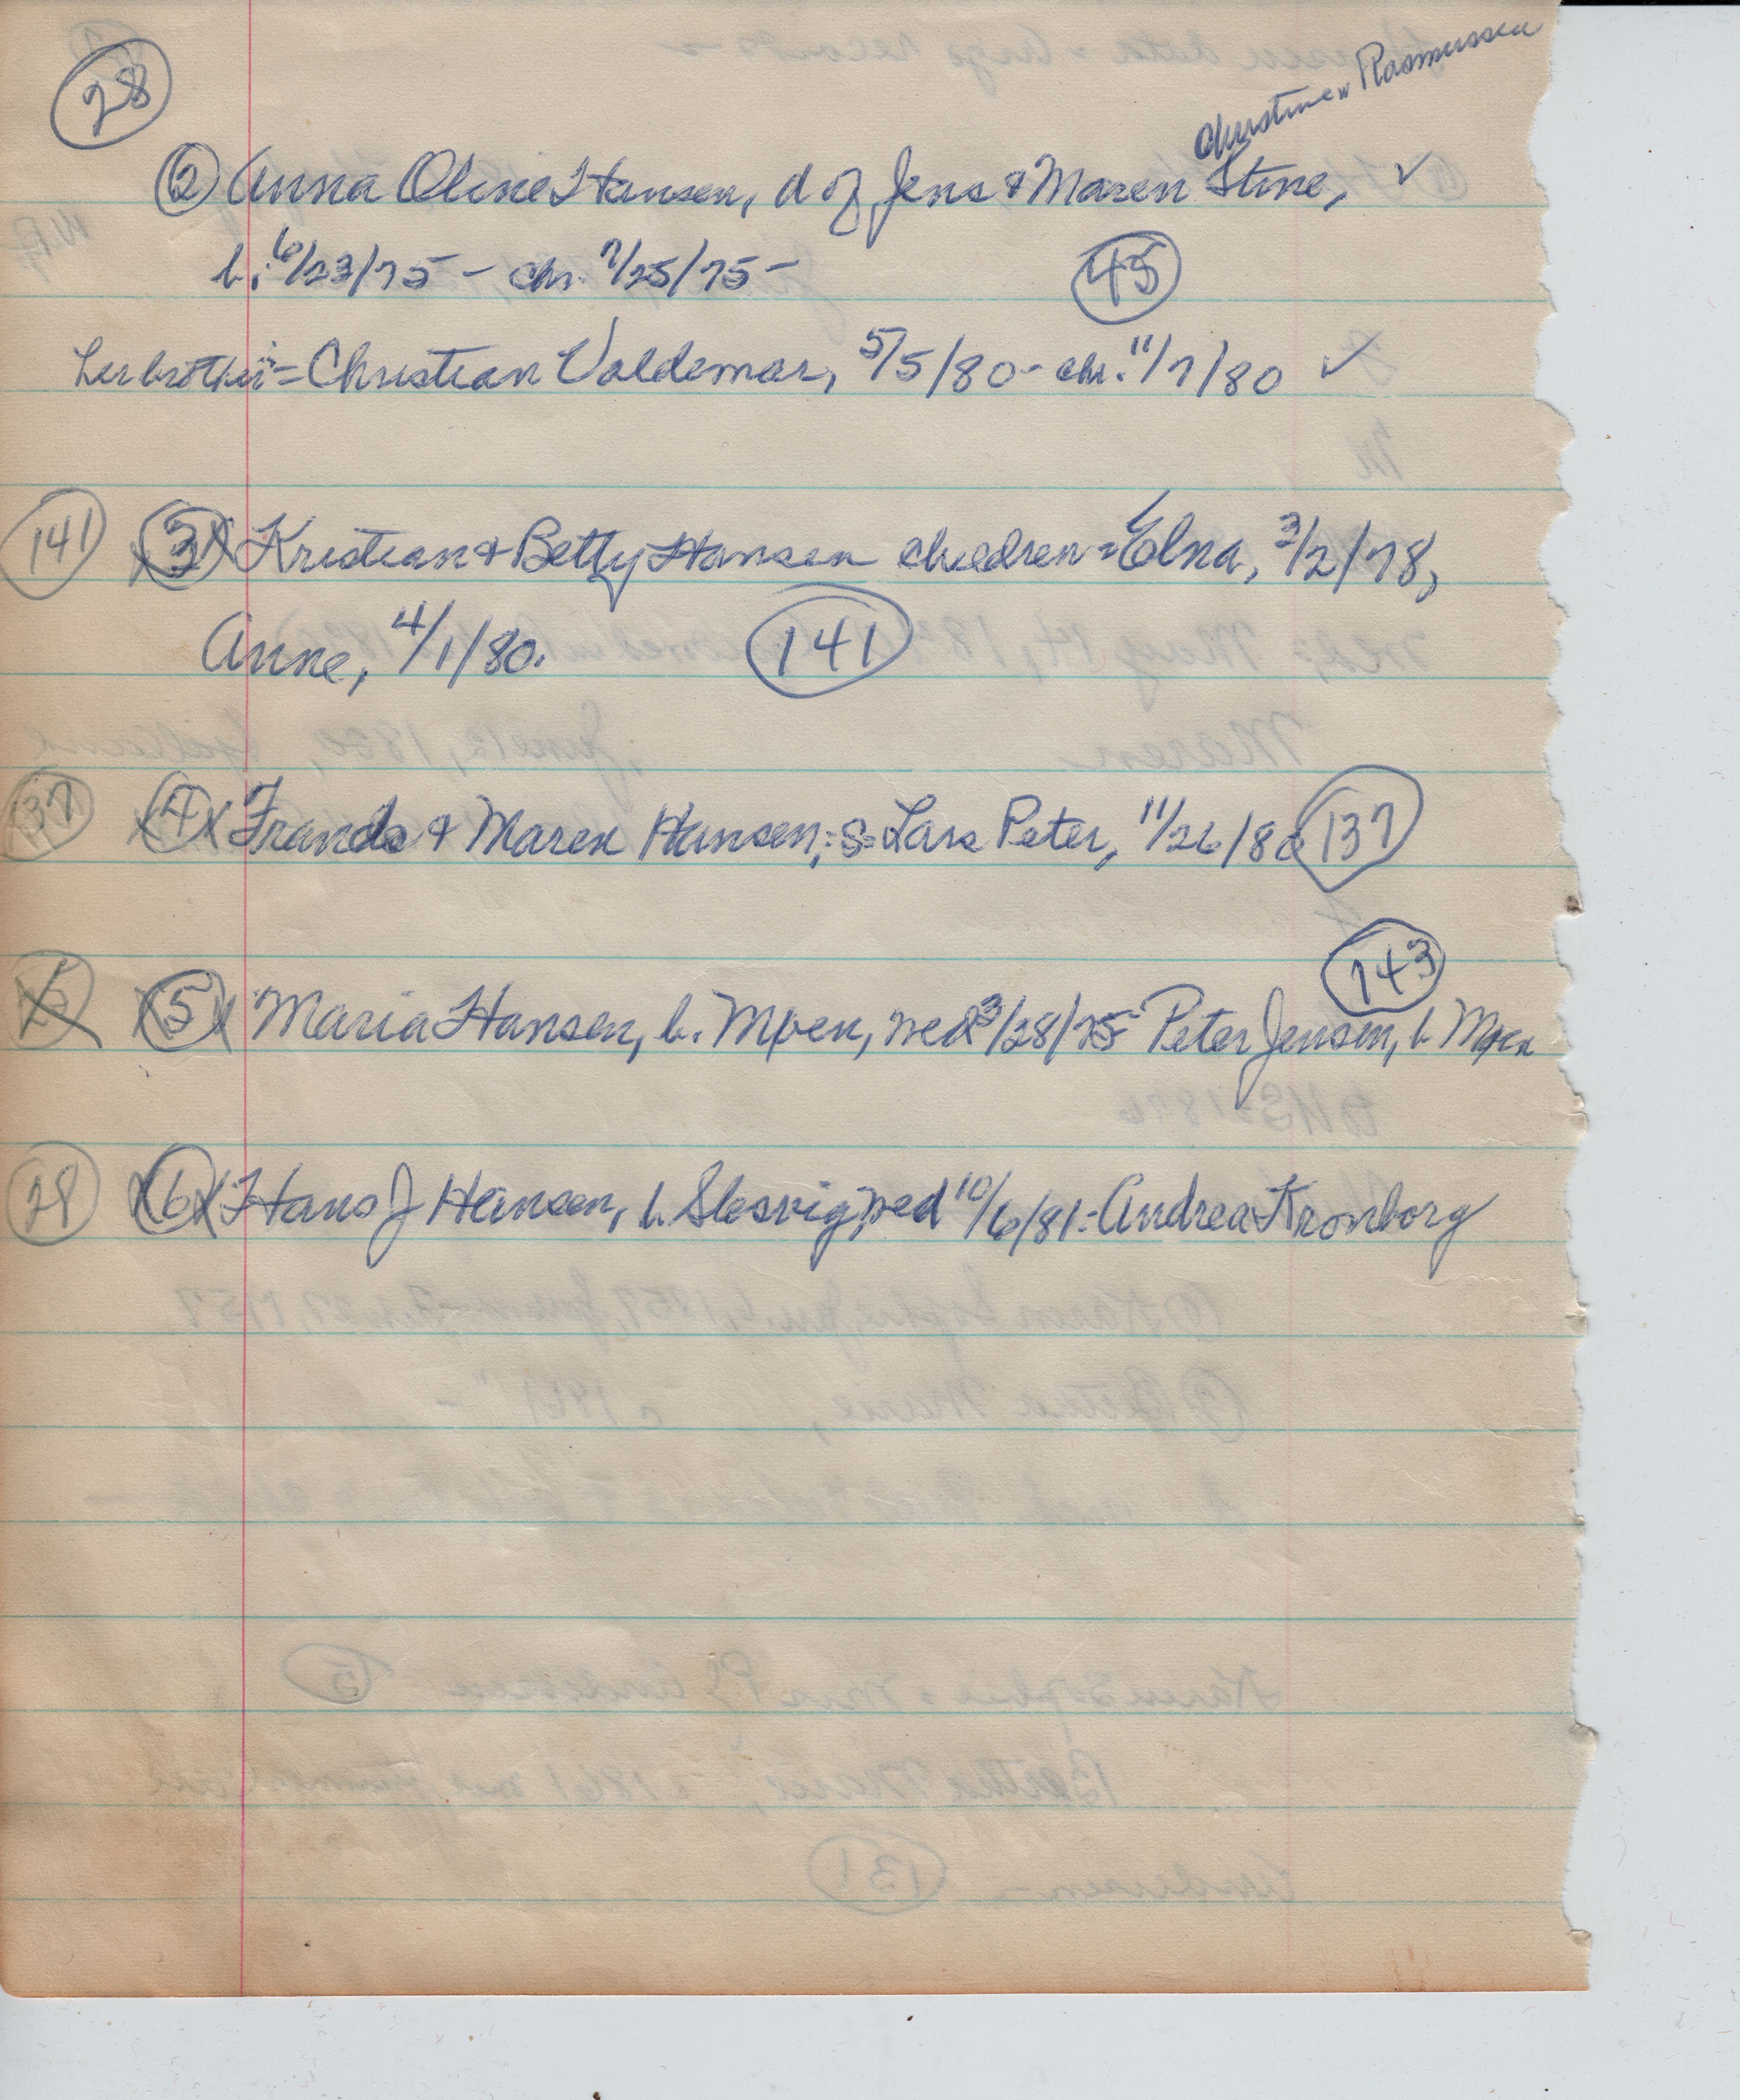 28
Christine N Rasmussen
(2) Anna Oline Hansen, d of Jens & Maren Stine, ✓
b. 6/23/75 - chr. 7/25/75 - (45)
her brother = Christian Valdemar, 5/5/80 - chr. 11/7/80 ✓
(141) x(3)x Kristian & Betty Hansen children = Elna, 3/2/78,
Anne, 4/1/80. (141)
(137) x(4)x Frands & Maren Hansen, s = Lars Peter, 11/26/80 (137)
(143)
x(5)x Maria Hansen, b. Møen, wed 3/28/75 Peter Jensen, b Møen
(29) x(6)x Hans J Hansen, b. Slesvig, wed 10/6/81 - Andrea Kronborg